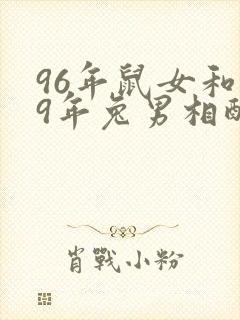 96年鼠女和
9年兔男相配
肖戰小粉